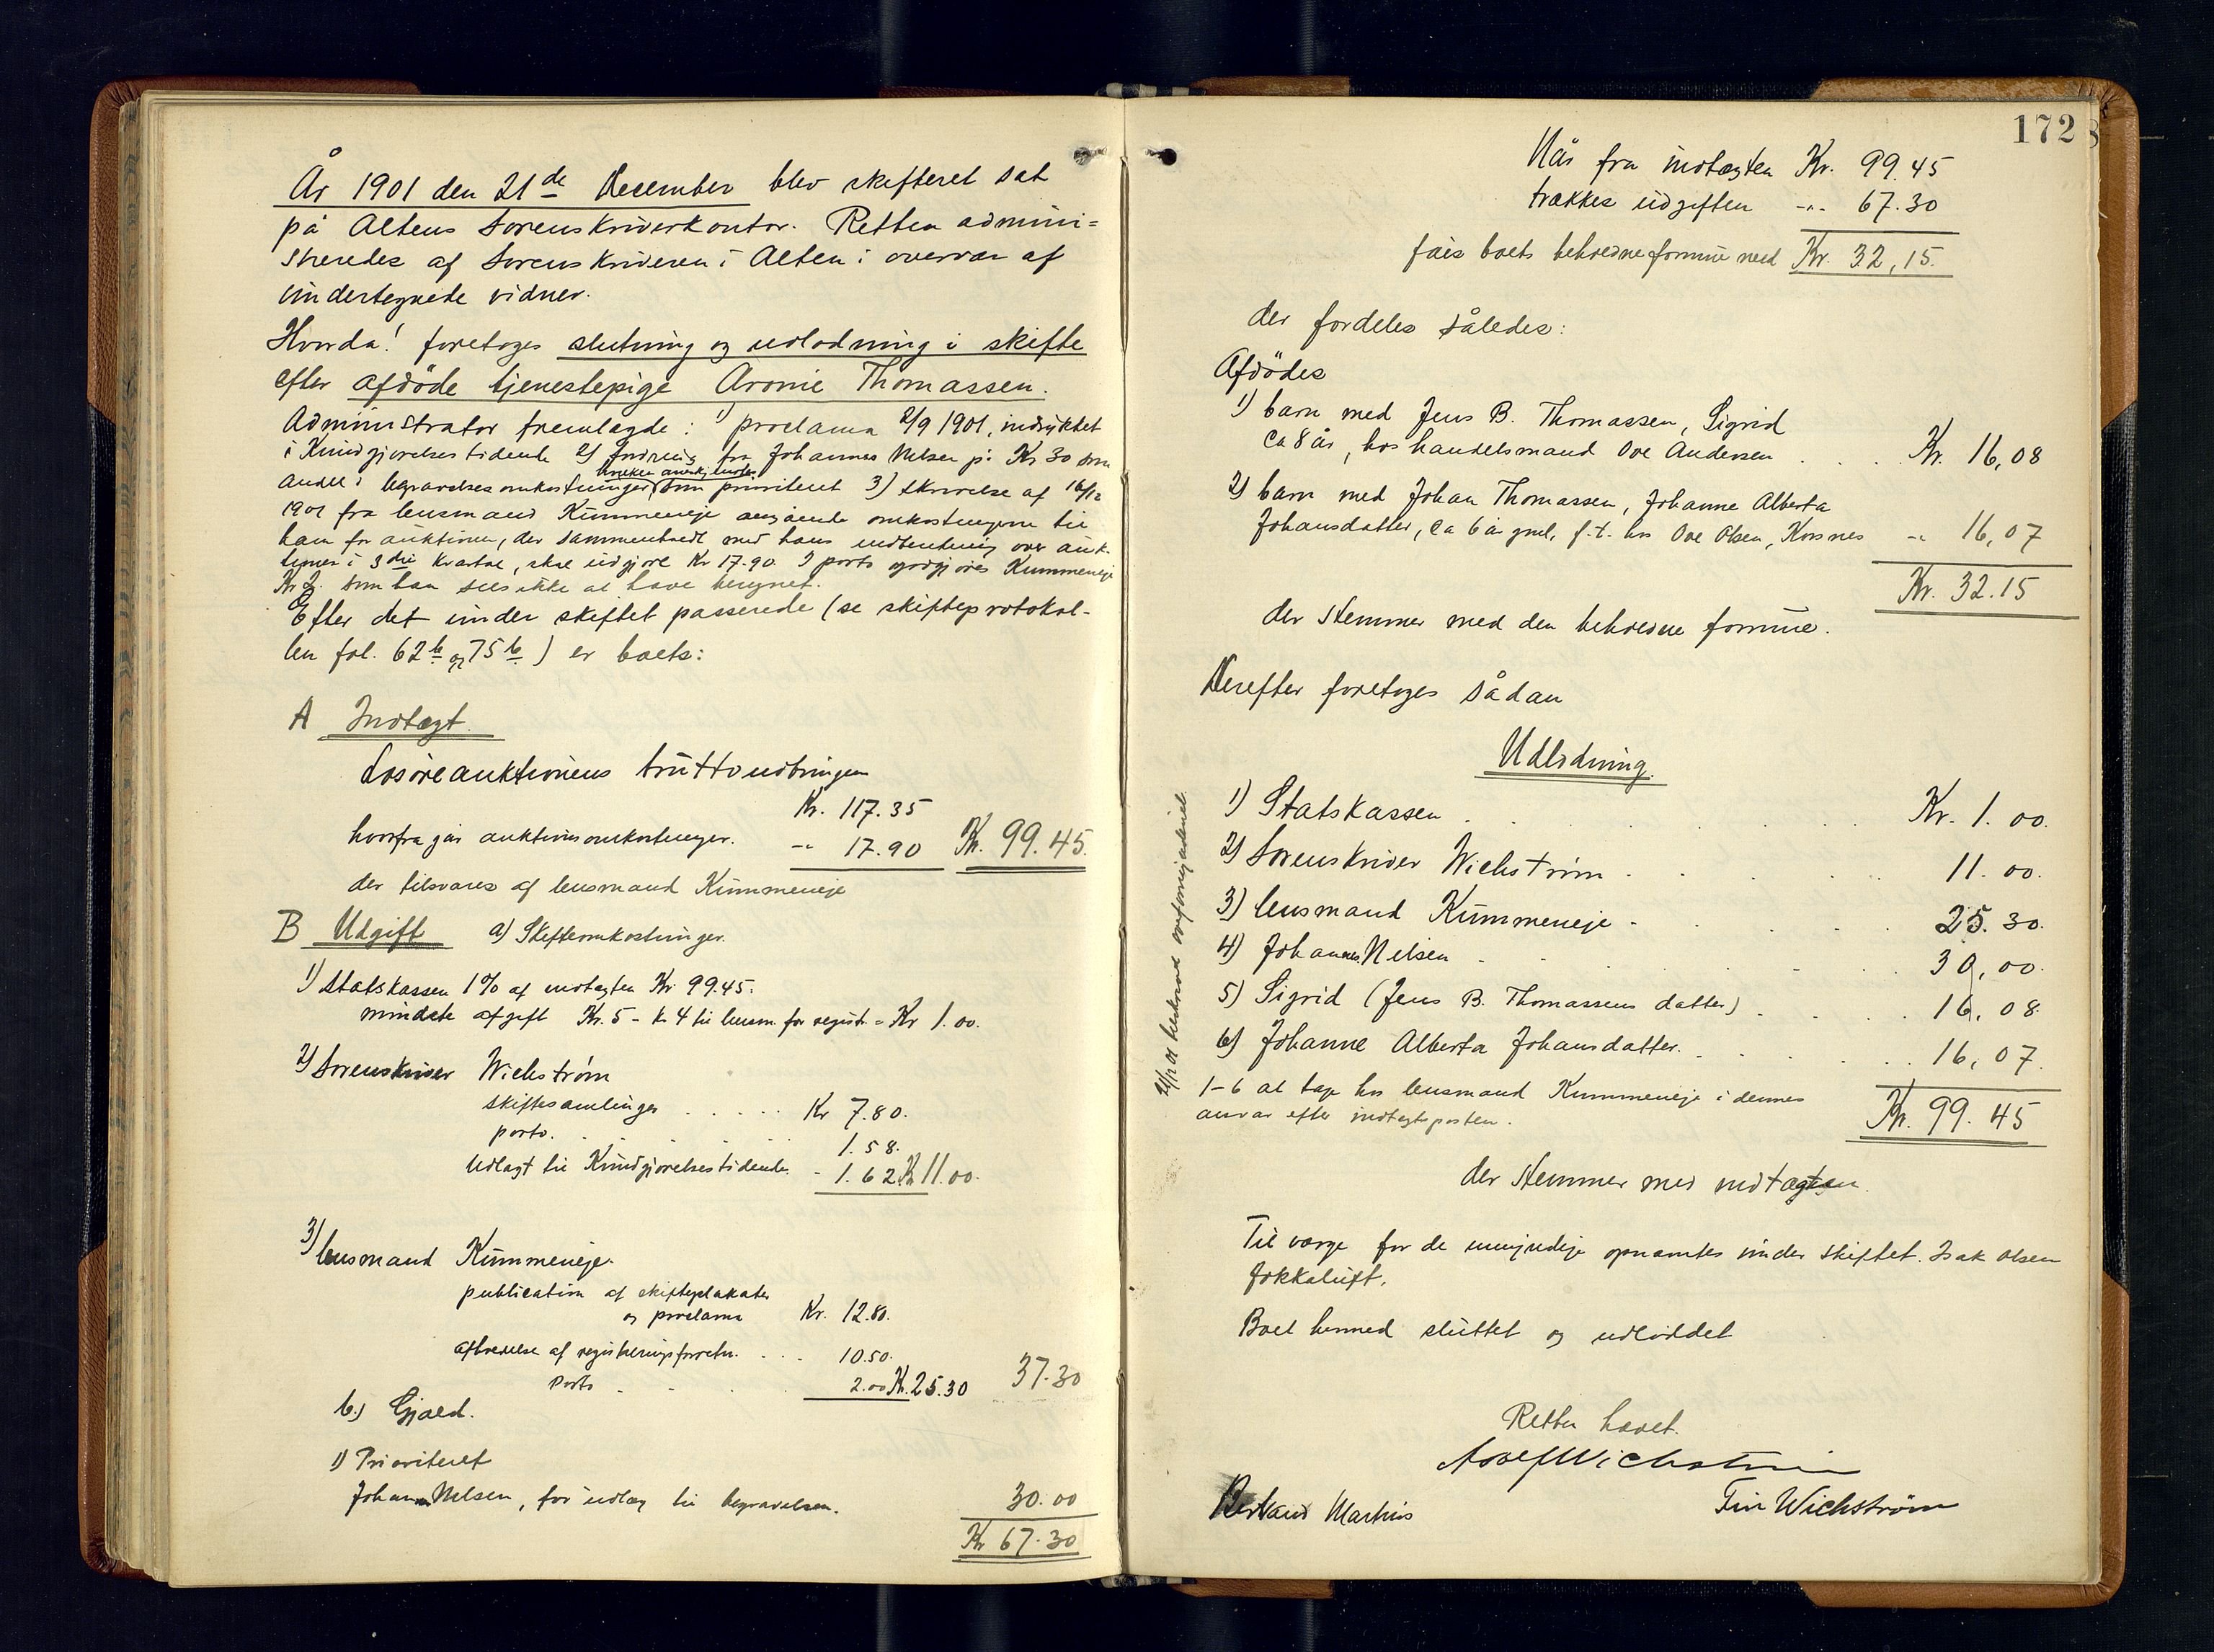 År 1901 den 21de December blev skifteret sat
på Altens Sorenskriverkontor. Retten admini=
streredes af Sorenskriveren i Alten i overvær af
undertegnede vidner.
Hvorda! foretoges slutning og udlodning i skifte
efter afdöde tjenestepige Aronie Thomassen.
Administrator fremlagde: 1) proclama 2/9 1901, indrykket
i Kundgjørelsestidende 2) fordring fra Johannes Nilsen på Kr 30 som
andel i begravelsesomkostninger, hvilken anerkjendes som prioriteret 3) skrivelse af 16/12
1901 fra lensmand Kummeneje angående omkostningerne til
ham for auktionen, der sammenholdt med hans indberetning over auk-
tioner i 3die kvartal, skal udgjøre Kr 17.90. I porto godtgjøres Kummeneje
Kr 2. som han sees ikke at have beregnet.
Efter det under skiftet passerede (se skifteprotokol-
len fol. 62b og 75b) er boets:
A Indtægt.
Løsøreauktionens bruttoudbringen
Kr. 117.35
hvorfra går auktionsomkostninger. -"- 17.90 Kr. 99.45.
der tilsvares af lensmand Kummeneje
B Udgift a) Skifteomkostninger.
1) Statskassen 1% af indtægten Kr 99.45.
mindste afgift Kr. 5 - kr 4 til lensm. for registr. = Kr 1.00.
2) Sorenskriver Wichstrøm
skiftesamlinger . . . . . Kr 7.80.
porto. . . . . 1.58.
Udlagt til Kundgjørelsestidende. - 1.62 Kr 11.00.
3) lensmand Kummeneje.
publication af skifteplakater
og proclama Kr. 12.80.
afhoedelse af registreringsforretn. . . . 10.50.
Porto . . . 2.00 Kr. 25.30 37.30
b.) Gjæld.
1) Prioriteret
Johannes Nilsen, for udlæg til begravelsen. 30.00
Kr 67.30
172
Når fra indtægten Kr. 99.45
trækkes udgiften -"- 67.30
fåes boets beholdne formue med Kr. 32,15.
der fordeles således:
Afdödes
1) barn med Jens B. Thomassen, Sigrid
ca 8 år, hos handelsmand Ove Andersen . . . . Kr. 16,08
2) barn med Johan Thomassen, Johanne Alberta
Johansdatter, ca 6 år gml, f.t. hos Ove Olsen, Korsnes -"- 16,07
Kr. 32.15
der stemmer med den beholdne formue.
Derefter foretoges sådan
Udlodning.
1) Statskassen . . . . Kr. 1.00.
2) Sorenskriver Wichstrøm . . . . 11.00.
3) lensmand Kummeneje . . . . 25.30.
4) Johannes Nilsen . . . . 30,00.
5) Sigrid (Jens B. Thomassens datter) . . . . 16,08.
6) Johanne Alberta Johansdatter. . . . . 16,07.
1-6 at tage hos lensmand Kummeneje i dennes
ansvar efter indtægtsposten. Kr. 99.45
der stemmer med indtægten.
Til værge for de umyndige opnævntes under skiftet Isak Olsen
Jokkaluft.
Boet hermed sluttet og udloddet
Retten hævet.
Adolf Wichstrøm
Martins Tin Wichstrøm